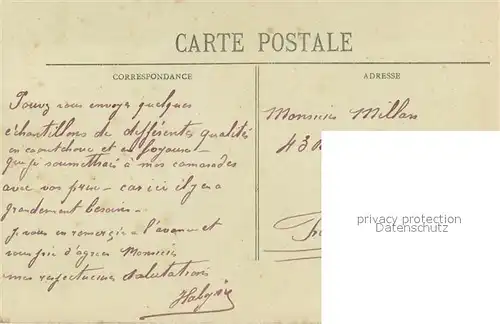 CARTE POSTALE
CORRESPONDANCE
ADRESSE
Pouvez vous envoyer quelques
échantillons de différentes qualités
en caoutchouc et en
que je soumettrai à mes camarades
avec vos prix — car ici il y en a
grandement besoin —
Je vous en remercie à l'avance et
vous prie d'agréer Monsieur
mes respectueuses salutations
Monsieur Millan
43
privacy protection
DVD-Buch-und-Mehr